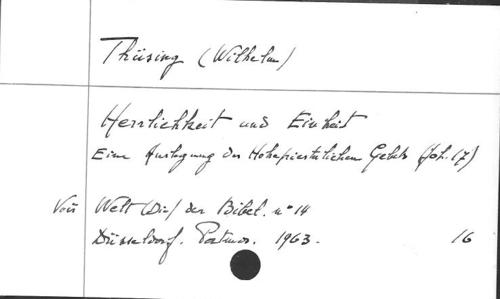 Thüsing (Wilhelm)
Herrlichkeit und Einheit
Eine Auslegung des Hohepriesterlichen Gebets (Joh. 17)
Voir Welt (Die) der Bibel. n° 14
Düsseldorf. Patmos. 1963. 16